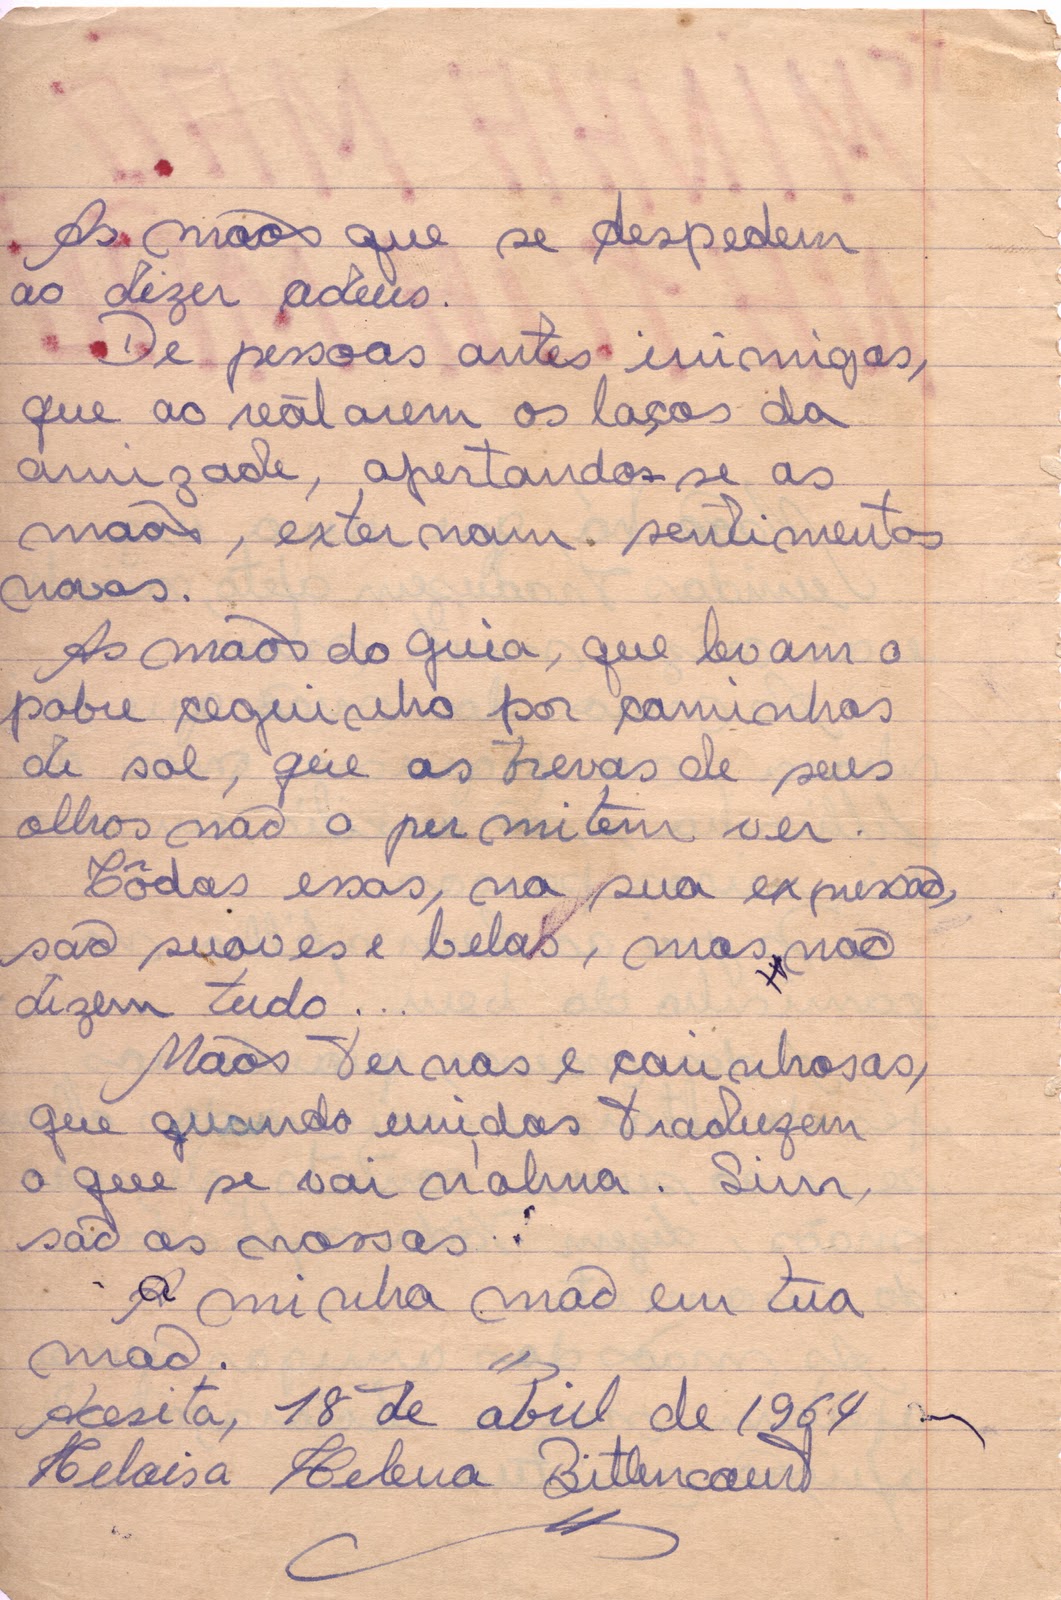 As mãos que se despedem
ao dizer adeus.
De pessoas antes inimigas,
que ao reatarem os laços da
amizade, apertando-se as
mãos, externam sentimentos
novos.
As mãos do guia, que levam o
pobre ceguinho por caminhos
de sol, que as trevas de seus
olhos não o permitem ver.
Tôdas essas, na sua expressão,
são suaves e belas, mas não
dizem tudo...
Mãos ternas e carinhosas,
que quando unidas traduzem
o que se vai n'alma. Sim,
são as nossas:
A minha mão em tua
mão.
Acesita, 18 de abril de 1964
Heloisa Helena Bittencourt